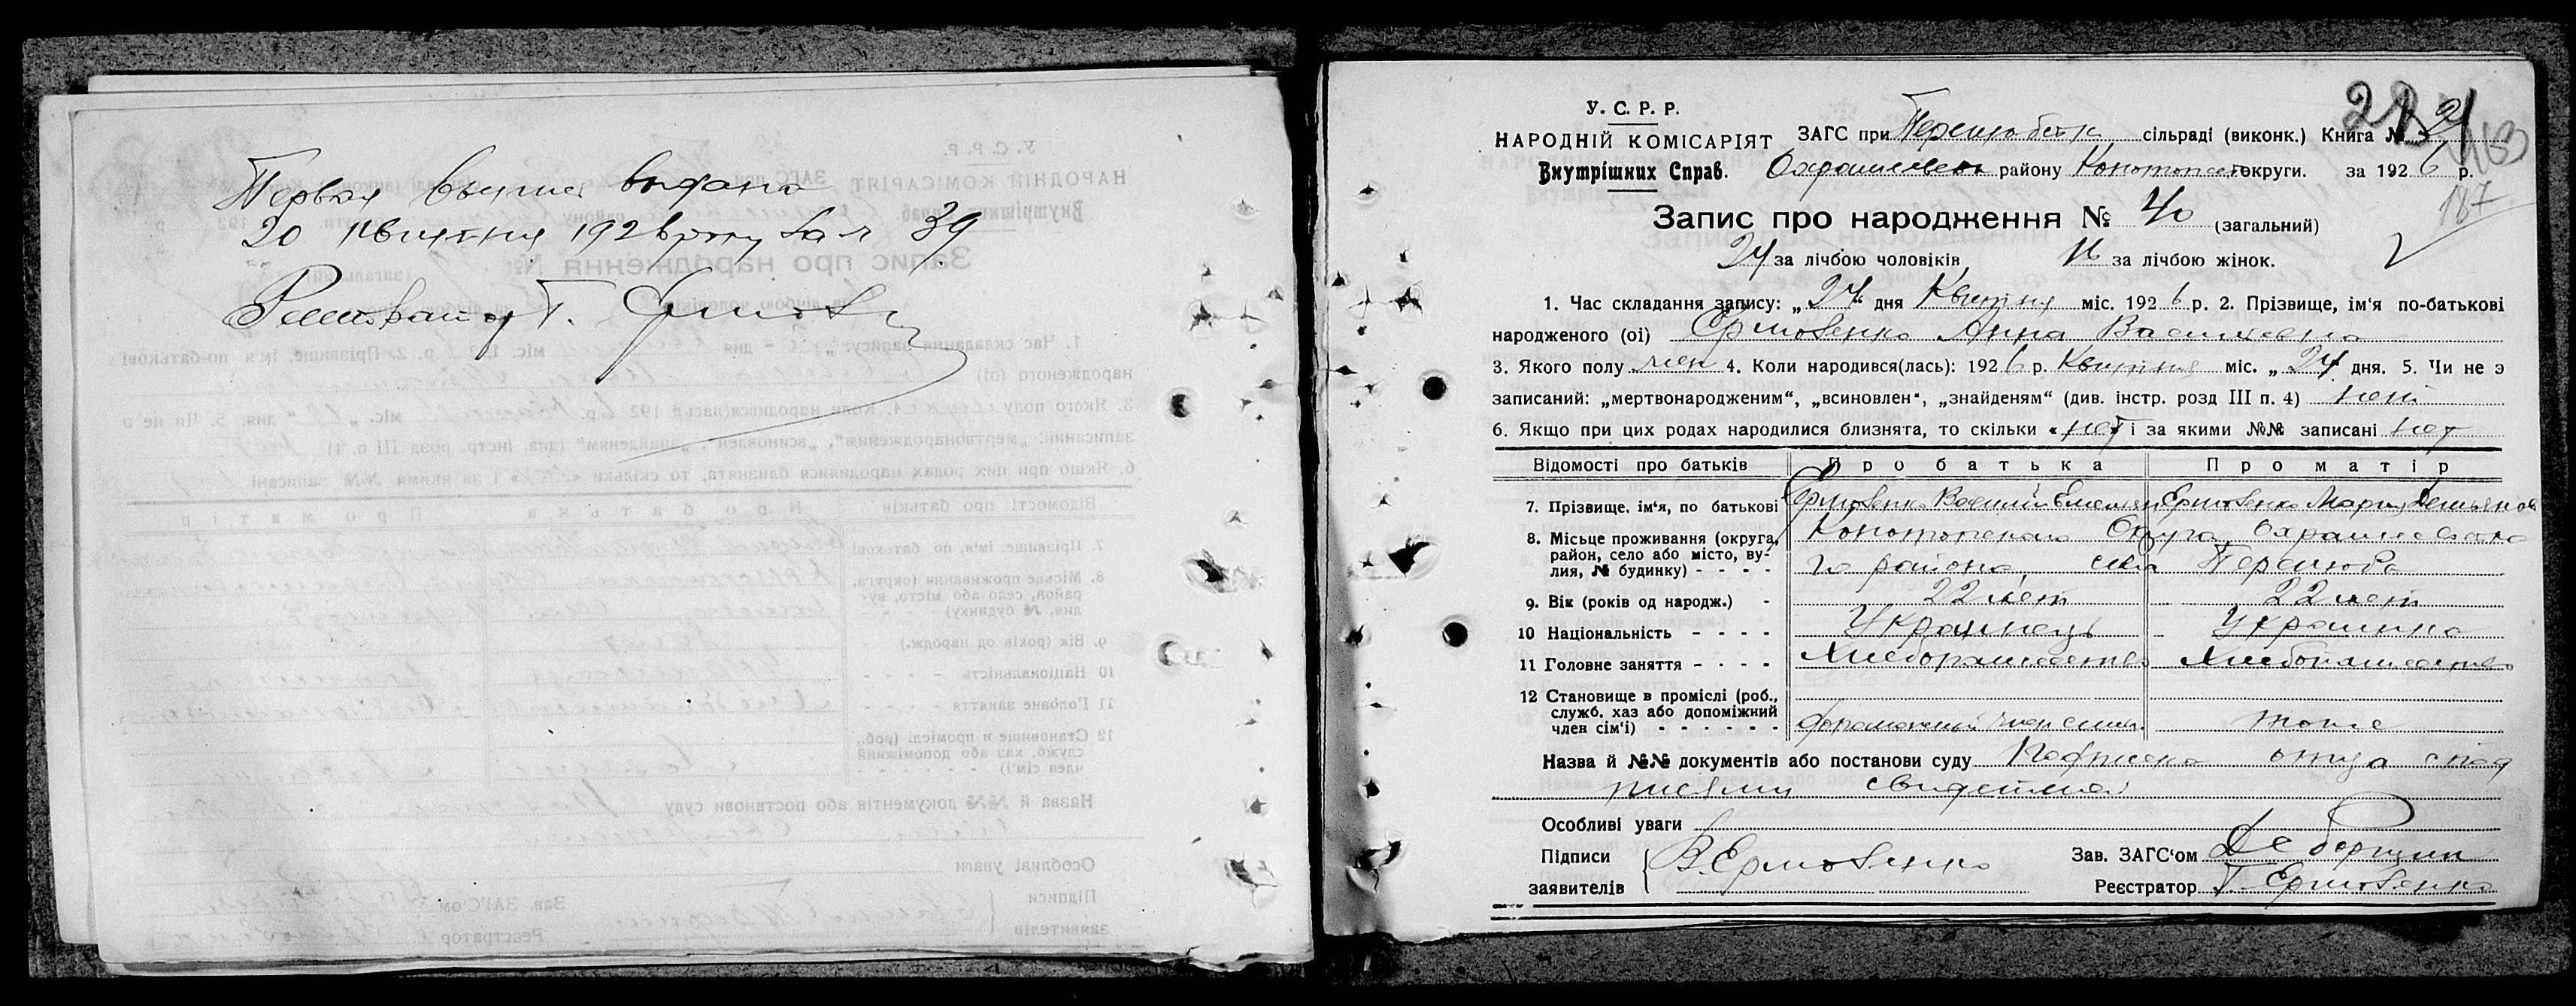 Первая выпись выдана
20 квитня 1926 року за № 39
Регистратор Т. Ермов
У. С. Р. Р.
НАРОДНІЙ КОМІСАРІЯТ
Внутрішних Справ.
ЗАГС при сільраді (виконк.) Книга № 2
району Конотопской округи. за 1926 р.
187
Запис про народження № 40 (загальний)
24 за лічбою чоловіків 16 за лічбою жінок.
1. Час складання запису: „24“ дня Квитня міс. 1926 р. 2. Прізвище, ім'я по-батькові
народженого (ої) Ермовенко Анна Васильевна
3. Якого полу жен 4. Коли народився(лась): 1926 р. Квитня міс. „24 дня. 5. Чи не э
записаний: „мертвонародженим“, „всиновлен“, „знайденям“ (див. інстр. розд III п. 4) нет
6. Якщо при цих родах народилися близнята, то скільки «нет і за якими №№ записані нет
Відомості про батьків Про батька Про матір
7. Прізвище, ім'я, по батькові Ермовенко Василий Емельян Ермовенко Мария Демьянов
8. Місьце проживання (округа, район, село або місто, вулия, № будинку) - - - - Конотопского Округа
го района, села
9. Вік (років од народж.) - 22 лет 22 лет
10 Національність - - - - Украинець Украинка
11 Головне заняття - - - - Хлеборашество Хлебопашество
12 Становище в промислі (роб., служб. хаз або допоміжний член сім'і) - - - - - - допоможный член семьи тоже
Назва й №№ документів або постанови суду Подписка отца с под
писями свидетелей
Особливі уваги
Підписи
заявителів
В. Ермовенко
Зав. ЗАГС'ом
Реєстратор Т. Ермовенко